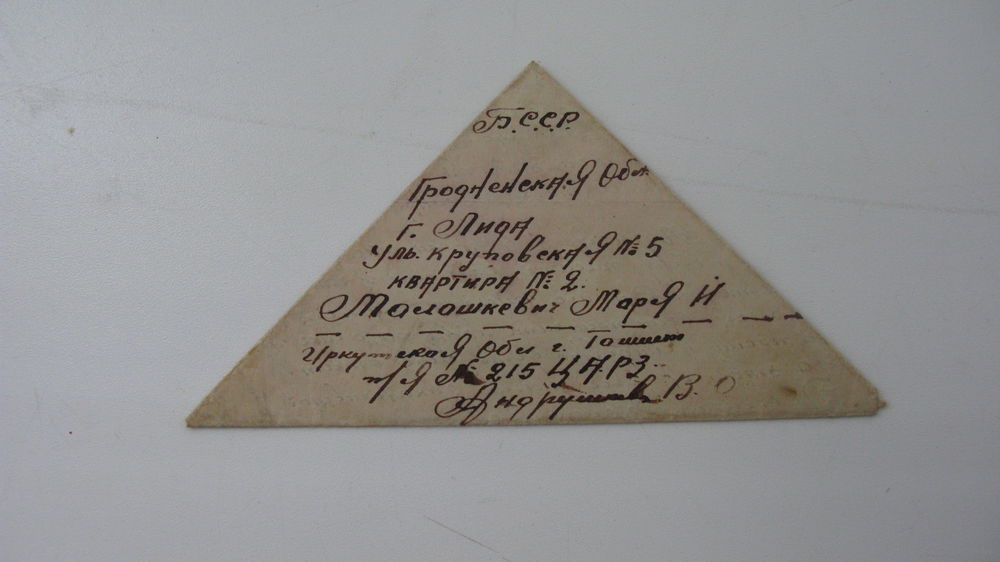 Б.С.С.Р.
Гродненская Обл.
г. Лида
Уль. Круповская № 5
квартира № 2.
Малашкевич Маря И
Иркутская Обл г. Тайшет
п/я № 215 ЦАРЗ
В. О